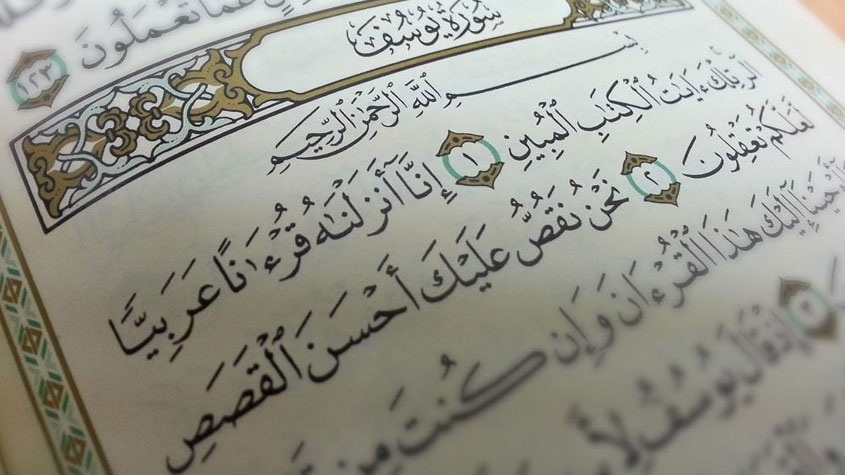 عَمَّا تَعْمَلُونَ ١٢٣
سُورَةُ يُوسُفَ
بِسْمِ ٱللَّهِ ٱلرَّحْمَٰنِ ٱلرَّحِيمِ
الٓر تِلْكَ ءَايَٰتُ ٱلْكِتَٰبِ ٱلْمُبِينِ ١ إِنَّآ أَنزَلْنَٰهُ قُرْءَٰنًا عَرَبِيًّا
لَّعَلَّكُمْ تَعْقِلُونَ ٢ نَحْنُ نَقُصُّ عَلَيْكَ أَحْسَنَ ٱلْقَصَصِ
أَوْحَيْنَآ إِلَيْكَ هَٰذَا ٱلْقُرْءَانَ وَإِن كُنتَ مِن
٣ إِذْ قَالَ يُوسُفُ